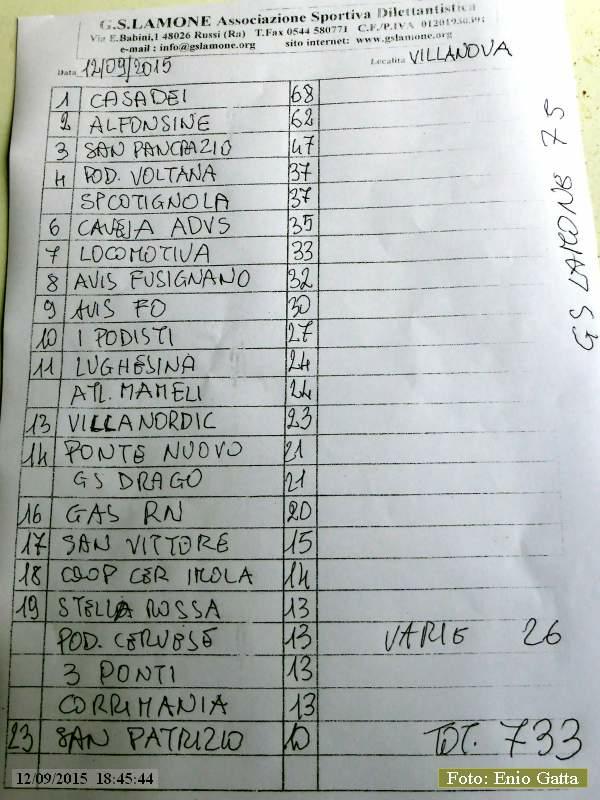 G.S.LAMONE Associazione Sportiva Dilettantistica
Via E.Babini,1 48026 Russi (Ra) T.Fax 0544 580771 C.F./P.IVA
e-mail : info@gslamone.org sito internet: www.gslamone.org
Data 12/09/2015 Località VILLANOVA
1 CASADEI 68
2 ALFONSINE 62
3 SAN PANCRAZIO 47
4 POD. VOLTANA 37
SPCOTIGNOLA 37
6 CAVEJA ADVS 35
7 LOCOMOTIVA 33
8 AVIS FUSIGNANO 32
9 AVIS FO 30
10 I PODISTI 27
11 LUGHESINA 24
ATL. MAMELI 24
13 VILLANORDIC 23
14 PONTE NUOVO 21
GS DRAGO 21
16 GAS RN 20
17 SAN VITTORE 15
18 COOP CER IMOLA 14
19 STELLA ROSSA 13
POD. CERVESE 13 VARIE 26
3 PONTI 13
CORRIMANIA 13
23 SAN PATRIZIO 10 TOT. 733
GS LAMONE 75
12/09/2015 18:45:44
Foto: Enio Gatta